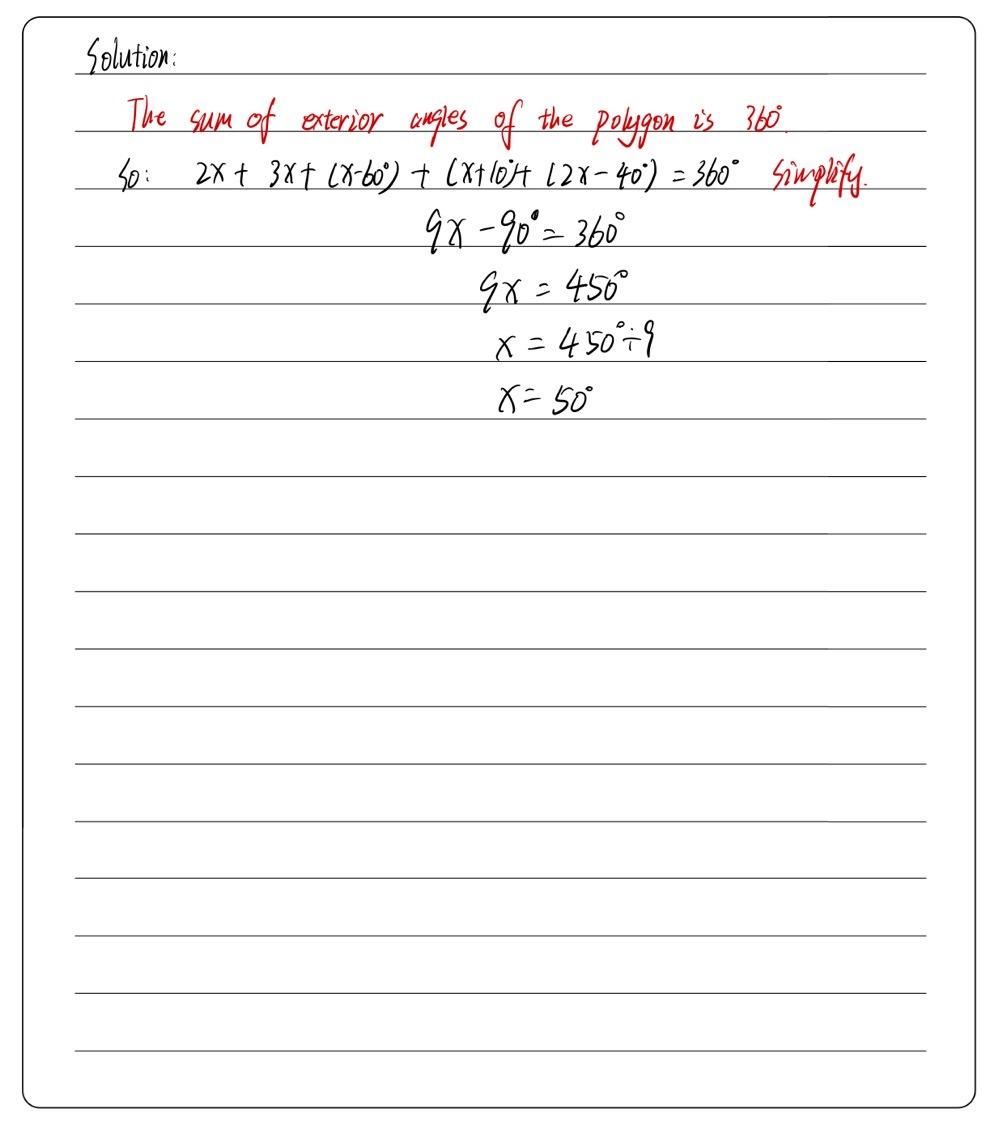 Solution:
The sum of exterior angles of the polygon is 360°.
So: 2x + 3x + (x-60°) + (x+10°)+ (2x-40°) = 360° Simplify.
9x - 90° = 360°
9x = 450°
x = 450° ÷ 9
x = 50°